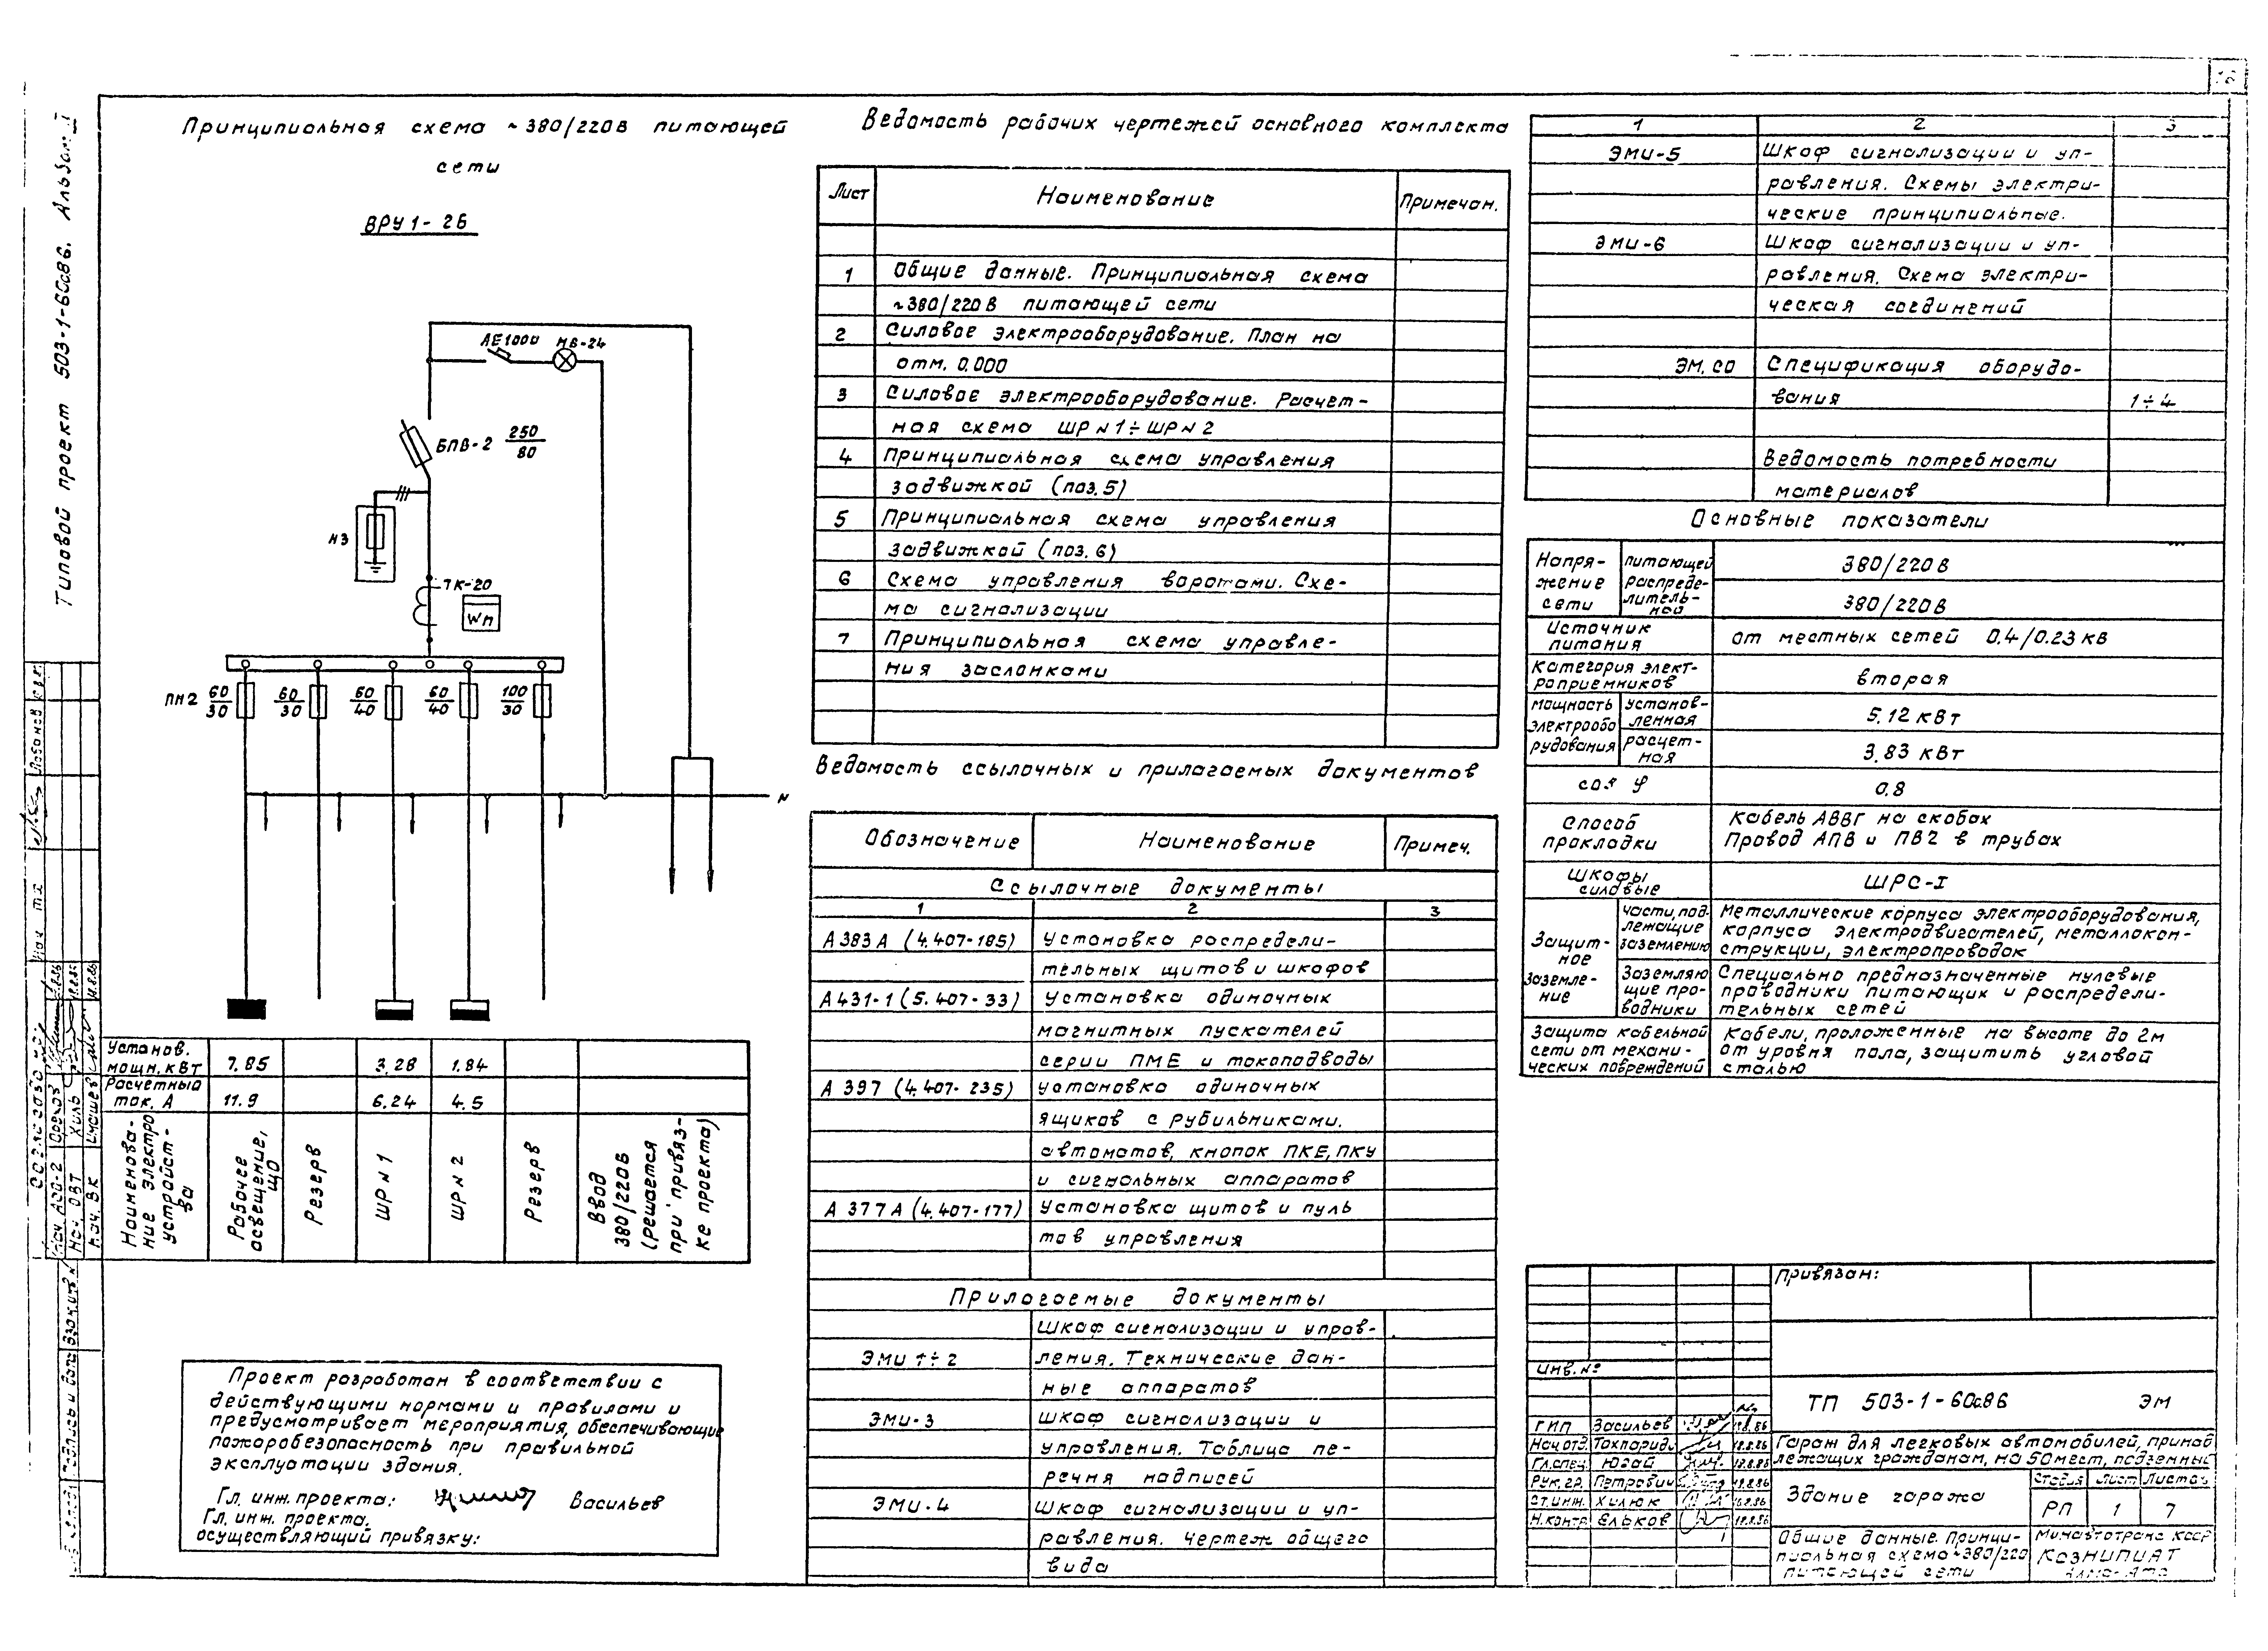 Типовой проект 503-1-60с86. Альбом I
Принципиальная схема ~380/220В питающей
сети
ВРУ1-2Б
АЕ1000 НВ-24
БПВ-2 250/80
ТК-20
Wh
ПН2 60/30 60/30 60/40 60/40 100/30
N
Установ. мощн. кВт 7.85 3.28 1.84
Расчетный ток. А 11.9 6.24 4.5
Наименова-
ние электро
устройст-
ва
Рабочее
освещение,
ЩО
Резерв
ШР N 1
ШР N 2
Резерв
Ввод
380/220В
(решается
при привяз-
ке проекта)
Проект разработан в соответствии с
действующими нормами и правилами и
предусматривает мероприятия, обеспечивающие
пожаробезопасность при правильной
эксплуатации здания.
Гл. инж. проекта: Васильев
Гл. инж. проекта.
осуществляющий привязку:
Ведомость рабочих чертежей основного комплекта
Лист Наименование Примечан.
1 Общие данные. Принципиальная схема
~380/220В питающей сети
2 Силовое электрооборудование. План на
отм. 0.000
3 Силовое электрооборудование. Расчет-
ная схема ШР N 1÷ШР N 2
4 Принципиальная схема управления
задвижкой (поз. 5)
5 Принципиальная схема управления
задвижкой (поз. 6)
6 Схема управления воротами. Схе-
ма сигнализации
7 Принципиальная схема управле-
ния заслонками
Ведомость ссылочных и прилагаемых документов
Обозначение Наименование Примеч.
Ссылочные документы
1 2 3
А383А (4.407-185) Установка распредели-
тельных щитов и шкафов
А431-1 (5.407-33) Установка одиночных
магнитных пускателей
серии ПМЕ и токоподводы
А 397 (4.407-235) установка одиночных
ящиков с рубильниками.
автоматов, кнопок ПКЕ, ПКУ
и сигнальных аппаратов
А 377А (4.407-177) Установка щитов и пуль
тов управления
Прилагаемые документы
Шкаф сигнализации и управ-
ЭМИ 1÷2 ления. Технические дан-
ные аппаратов
ЭМИ-3 Шкаф сигнализации и
управления. Таблица пе-
речня надписей
ЭМИ-4 Шкаф сигнализации и уп-
равления. Чертеж общего
вида
1 2 3
ЭМИ-5 Шкаф сигнализации и уп-
равления. Схемы электри-
ческие принципиальные.
ЭМИ-6 Шкаф сигнализации и уп-
равления. Схема электри-
ческая соединений
ЭМ. СО Спецификация оборудо-
вания 1÷4
Ведомость потребности
материалов
Основные показатели
Напря-
жение
сети
питающей 380/220В
распреде-
литель-
ной 380/220В
Источник
питания от местных сетей 0.4/0.23 кВ
Категория элект-
роприемников вторая
мощность
электрообо
рудования
установ-
ленная 5.12 кВт
расчет-
ная 3.83 кВт
cos φ 0.8
Способ
прокладки
Кабель АВВГ на скобах
Провод АПВ и ПВ2 в трубах
Шкафы
силовые ШРС-I
Защит-
ное
заземле-
ние
части, под
лежащие
заземлению
Металлические корпуса электрооборудования,
корпуса электродвигателей, металлокон-
струкции, электропроводок
Заземляю
щие про-
водники
Специально предназначенные нулевые
проводники питающих и распредели-
тельных сетей
Защита кабельной
сети от механи-
ческих повреждений
Кабели, проложенные на высоте до 2м
от уровня пола, защитить угловой
сталью
Привязан:
Инв. №
ТП 503-1-60с86 ЭМ
ГИП Васильев
Нач.отд.
Гл.спец. Югай
Рук. гр.
Ст.инж. Хилюк
Н.контр Ельков
Гараж для легковых автомобилей, принад
лежащих гражданам, на 50 мест, подземный
Здание гаража
Стадия Лист Листов
РП 1 7
Общие данные. Принци-
пиальная схема ~380/220
питающей сети
Минавтотранс КССР
КазНИПИАТ
Алма-Ата